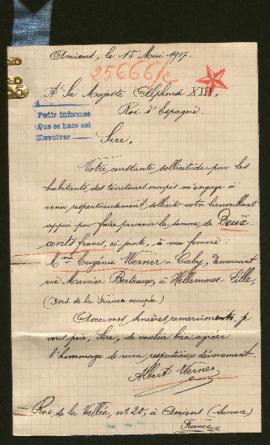 Amiens, le 15 Mai 1917.
25666/c
A Sa Majesté Alphonse XIII,
Roi d'Espagne.
A
Pedir informes
Que se hace así
Devolver
Sire,
Votre constante sollicitude pour les
habitants des territoires occupés m'engage à
venir respectueusement solliciter votre bienveillant
appui pour faire parvenir la somme de Deux
cents francs, ci-joints, à ma femme
Mme Eugénie Werner-Caby, demeurant
rue Maurice Berteaux, à Hellemmes-Lille,
(Nord de la France occupé)
Avec mes sincères remerciements, je
vous prie, Sire, de vouloir bien agréer
l'hommage de mon respectueux dévouement.
Albert Werner
Rue de la Vallée, n° 20, à Amiens (Somme)
France